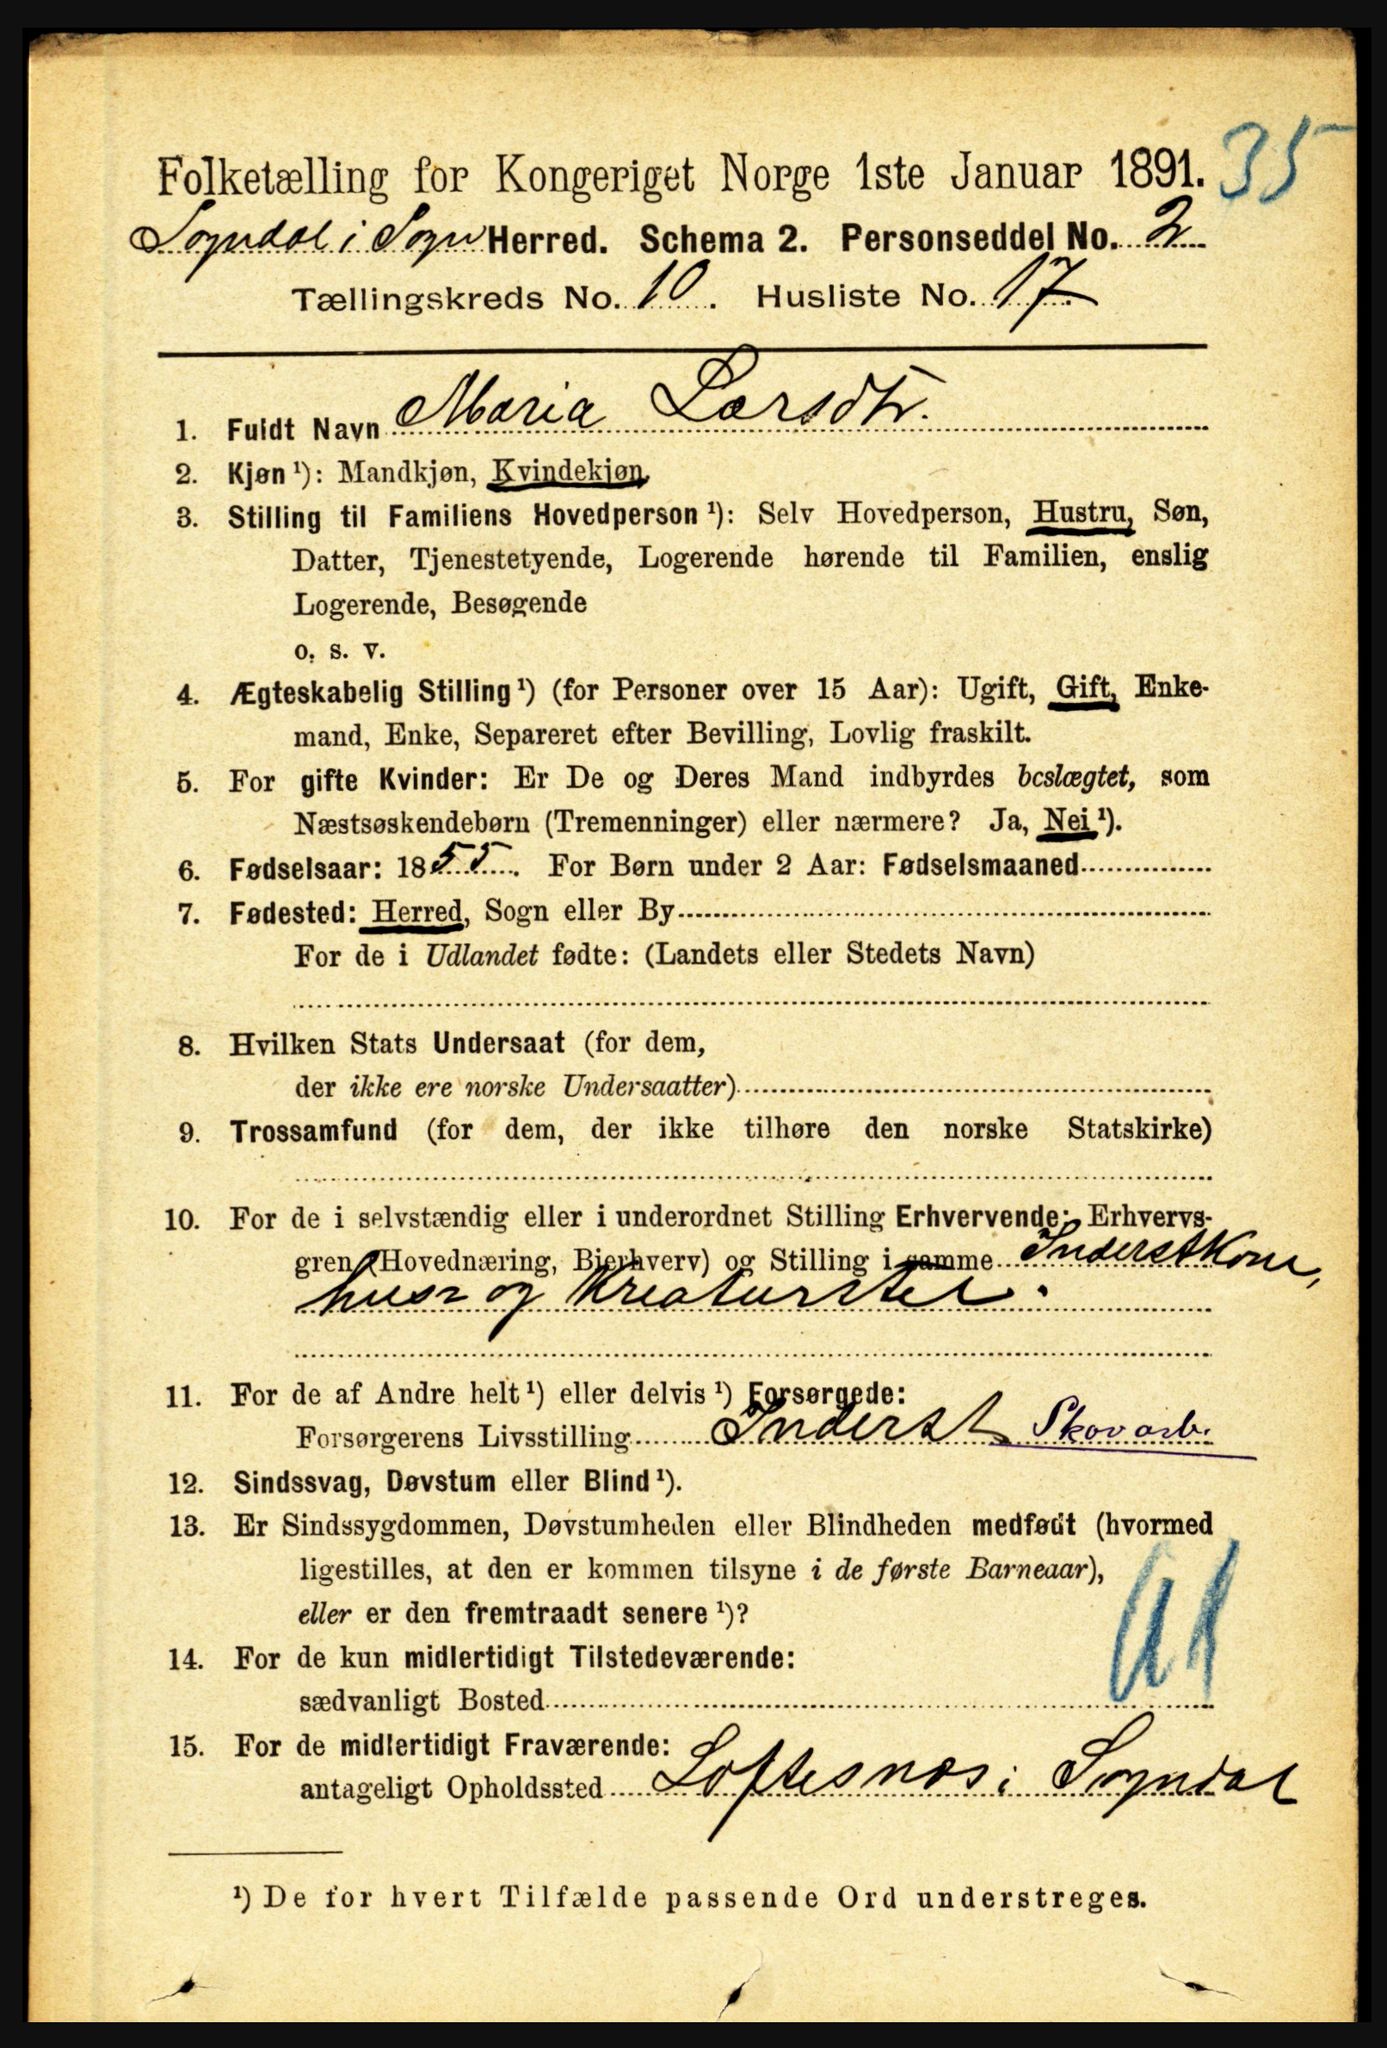 35
Folketælling for Kongeriget Norge 1ste Januar 1891.
Sogndal i Sogn Herred. Schema 2. Personseddel No. 2
Tællingskreds No. 10. Husliste No. 17.
1. Fuldt Navn Maria Larsdtr.
2. Kjøn ¹): Mandkjøn, Kvindekjøn.
3. Stilling til Familiens Hovedperson ¹): Selv Hovedperson, Hustru, Søn,
Datter, Tjenestetyende, Logerende hørende til Familien, enslig
Logerende, Besøgende
o. s. v.
4. Ægteskabelig Stilling ¹) (for Personer over 15 Aar): Ugift, Gift, Enke-
mand, Enke, Separeret efter Bevilling, Lovlig fraskilt.
5. For gifte Kvinder: Er De og Deres Mand indbyrdes beslægtet, som
Næstsøskendebørn (Tremenninger) eller nærmere? Ja, Nei ¹).
6. Fødselsaar: 1855. For Børn under 2 Aar: Fødselsmaaned
7. Fødested: Herred, Sogn eller By
For de i Udlandet fødte: (Landets eller Stedets Navn)
8. Hvilken Stats Undersaat (for dem,
der ikke ere norske Undersaatter)
9. Trossamfund (for dem, der ikke tilhøre den norske Statskirke)
10. For de i selvstændig eller i underordnet Stilling Erhvervende: Erhvervs-
gren (Hovednæring, Bierhverv) og Stilling i samme Inderst Kone,
hus= og Kreaturstel.
11. For de af Andre helt ¹) eller delvis ¹) Forsørgede:
Forsørgerens Livsstilling Inderst Skovarb.
12. Sindssvag, Døvstum eller Blind ¹).
13. Er Sindssygdommen, Døvstumheden eller Blindheden medfødt (hvormed
ligestilles, at den er kommen tilsyne i de første Barneaar),
eller er den fremtraadt senere ¹)?
14. For de kun midlertidigt Tilstedeværende:
sædvanligt Bosted
15. For de midlertidigt Fraværende:
antageligt Opholdssted Loftesnæs i Sogndal
¹) De for hvert Tilfælde passende Ord understreges.